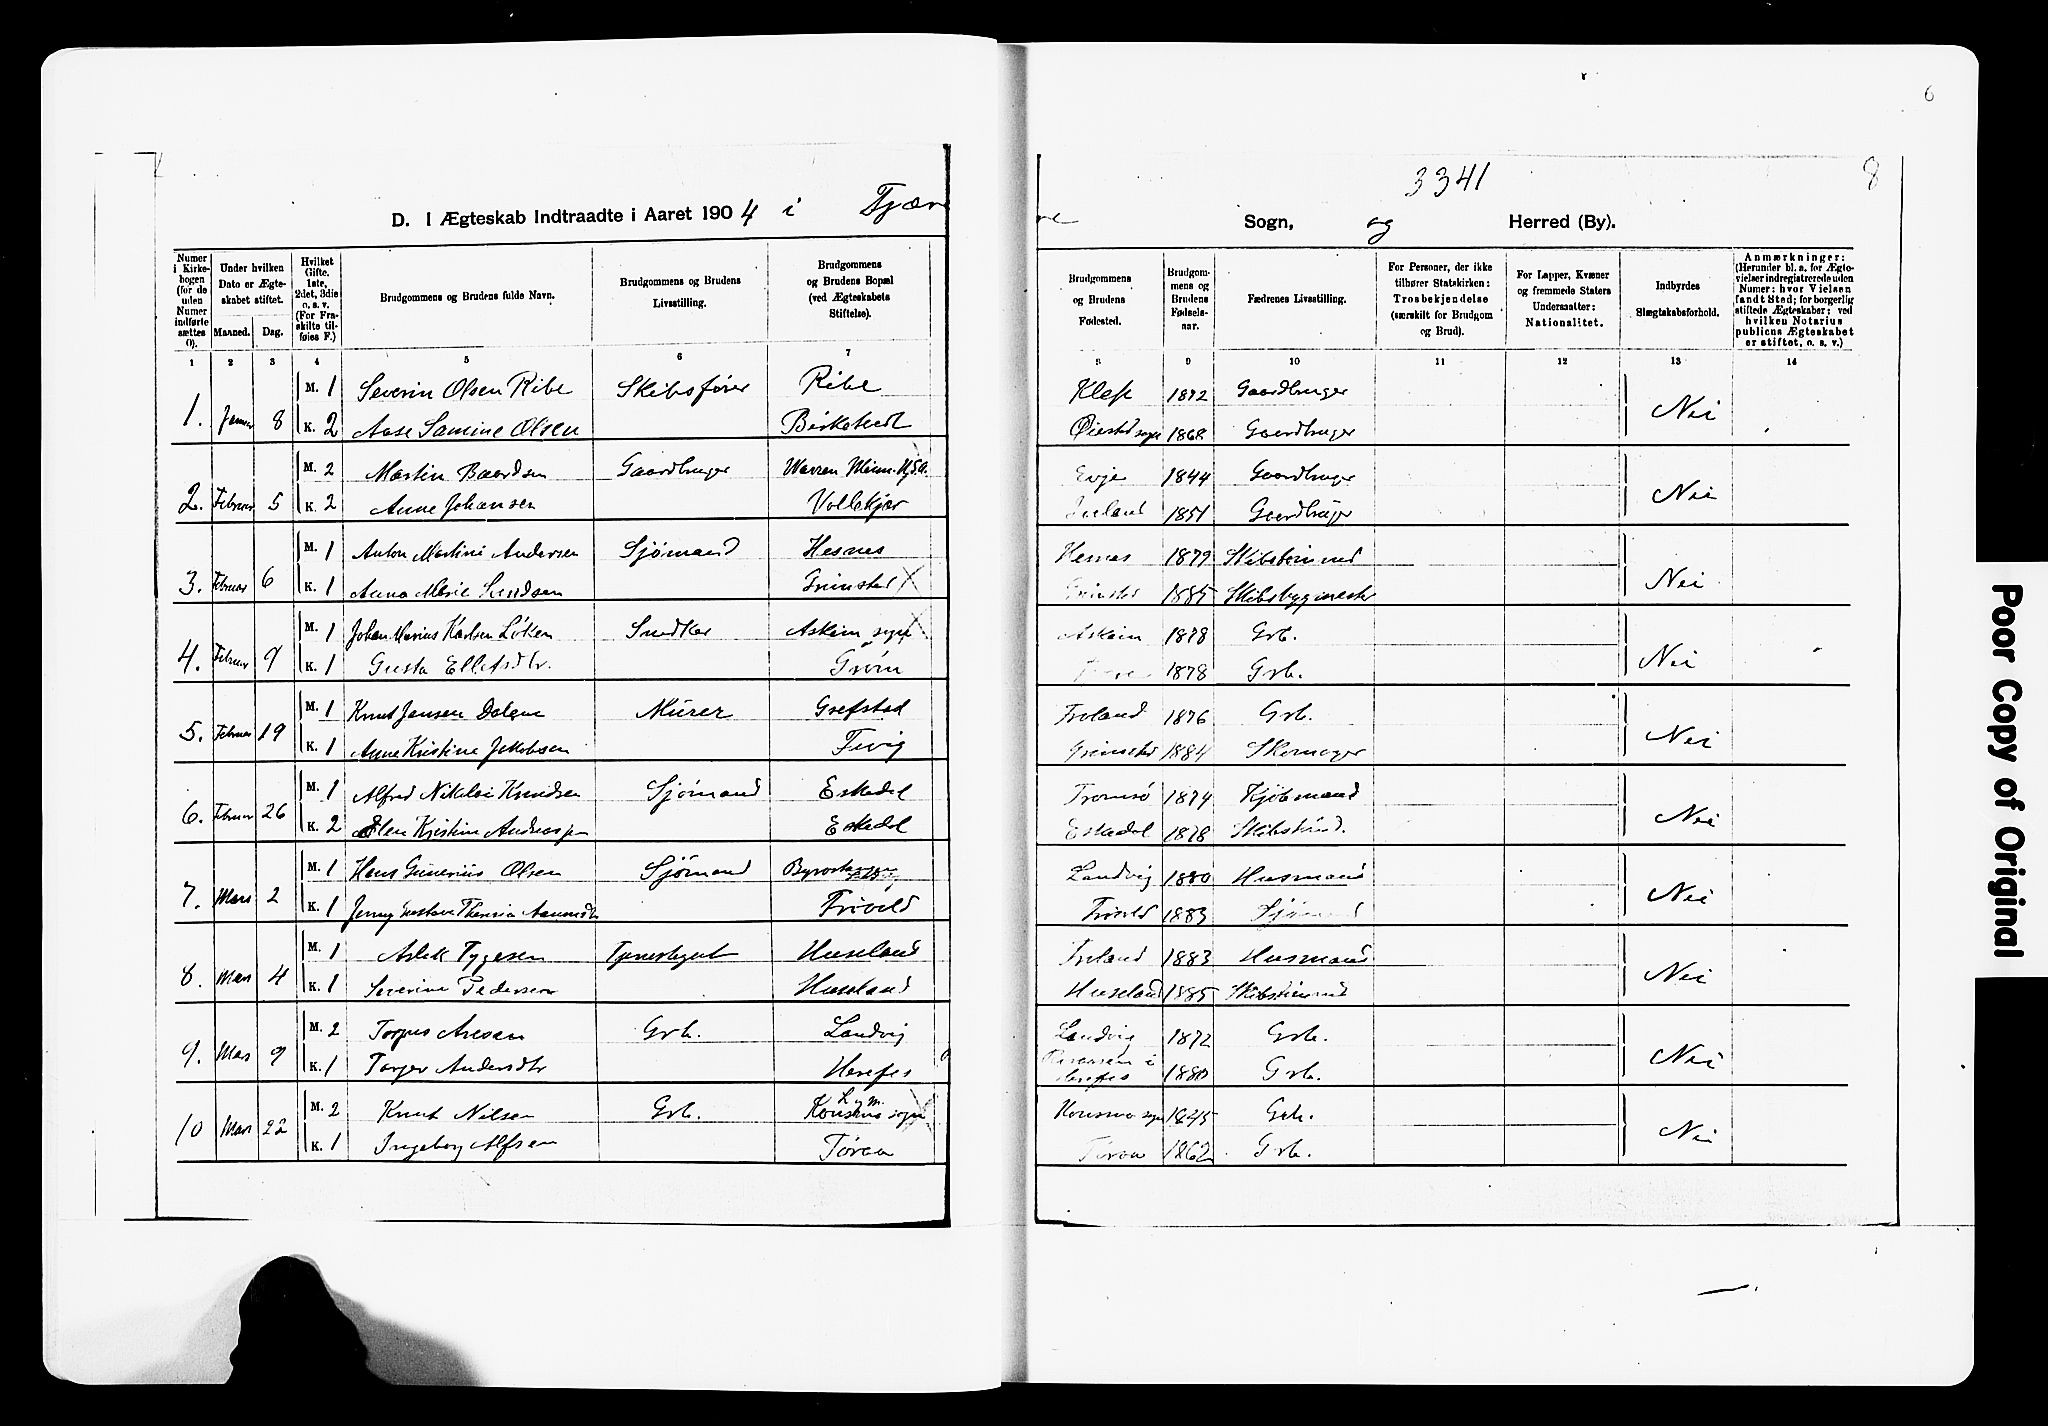 6
3341
8
D. I Ægteskab Indtraadte i Aaret 1904 i Fjære Sogn, og Herred (By).
Numer i Kirkebogen (for de uden Numer indførte sættes 0).
Under hvilken Dato er Ægteskabet stiftet.
Maaned. Dag.
Hvilket Gifte, 1ste, 2det, 3die o. s. v. (For Fraskilte tilføies F.)
Brudgommens og Brudens fulde Navn.
Brudgommens og Brudens Livsstilling.
Brudgommens og Brudens Bopæl (ved Ægteskabets Stiftelse).
Brudgommens og Brudens Fødested.
Brudgommens og Brudens Fødselsaar.
Fædrenes Livsstilling.
For Personer, der ikke tilhører Statskirken: Trosbekjendelse (særskilt for Brudgom og Brud).
For Lapper, Kvæner og fremmede Staters Undersaatter: Nationalitet.
Indbyrdes Slægtskabsforhold.
Anmærkninger: (Herunder bl. a. for Ægtevielser indregistrerede uden Numer: hvor Vielsen fandt Sted; for borgerlig stiftede Ægteskaber: ved hvilken Notarius publicus Ægteskabet er stiftet, o. s. v.)
1 2 3 4 5 6 7 8 9 10 11 12 13 14
1. Januar 8 M. 1 Severin Olsen Ribe Skibsfører Ribe Klep 1872 Gaardbruger Nei
K. 2 Aase Samine Olsen Birketvedt Øiestad sogn 1868 Gaardbruger
2. Februar 5 M. 2 Martin Baardsen Gaardbruger Warren Minn. U.S.A. Evje 1844 Gaardbruger Nei
K. 2 Anne Johansen Vollekjær 1851 Gaardbruger
3. Februar 6 M. 1 Anton Martini Andersen Sjømand Hesnes Hesnes 1879 Skibstømmd Nei
K. 1 Anna Marie Grimstad Grimstad 1885 Skibsbyggmester
4. Februar 9 M. 1 Johan Marius Karlsen Løken Snedker Askim sogn Askim 1878 Grb. Nei
K. 1 Gusta Ellefsdtr. Grøm 1878 Grb.
5. Februar 19 M. 1 Knut Jensen Dalene Murer Grefstad Froland 1876 Grb. Nei
K. 1 Anne Kristine Jakobsen Fevig Grimstad 1884 Skomager
6. Februar 26 M. 1 Alfred Nikolai Knudsen Sjømand Eskedal Tromsø 1874 Kjøbmand Nei
K. 2 Elen Kristine Eskedal Eskedal 1878
7. Mars 2 M. 1 Hans Gunerius Olsen Sjømand Landvig 1880 Husmand Nei
K. 1 Jenny Gustava Theresia Frivold Frivold 1883 Sjømand
8. Mars 4 M. 1 Aslak Tygesen Tjenestegut Huseland Froland 1883 Husmand Nei
K. 1 Severine Pedersen Huseland Huseland 1885 Skibstømmd
9. Mars 9 M. 2 Torjus Aresen Grb. Landvig Landvig 1872 Grb. Nei
K. 1 Torjer Andersdtr Herefos i Herefos 1880 Grb.
10 Mars 22 M. 2 Knut Nilsen Grb. L. og M. Konsmo sogn Konsmo sogn 1845 Grb. Nei
K. 1 Ingeborg Alfsen Tøraa Tøraa 1862 Grb.
Poor Copy of Original